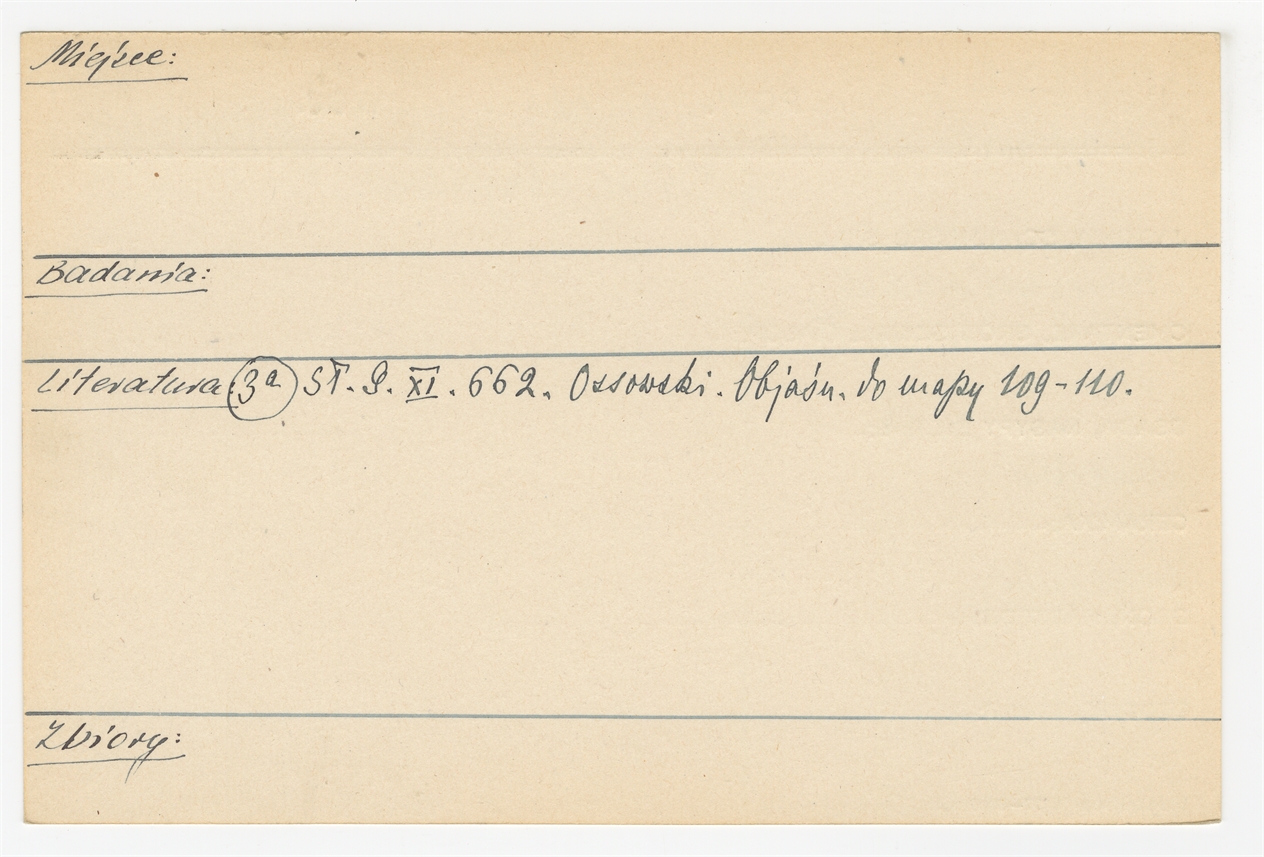 Miejsce:
Badania:
Literatura: 3a St. G. XI. 662. Ossowski. Objaśn. do mapy 109-110.
Zbiory: